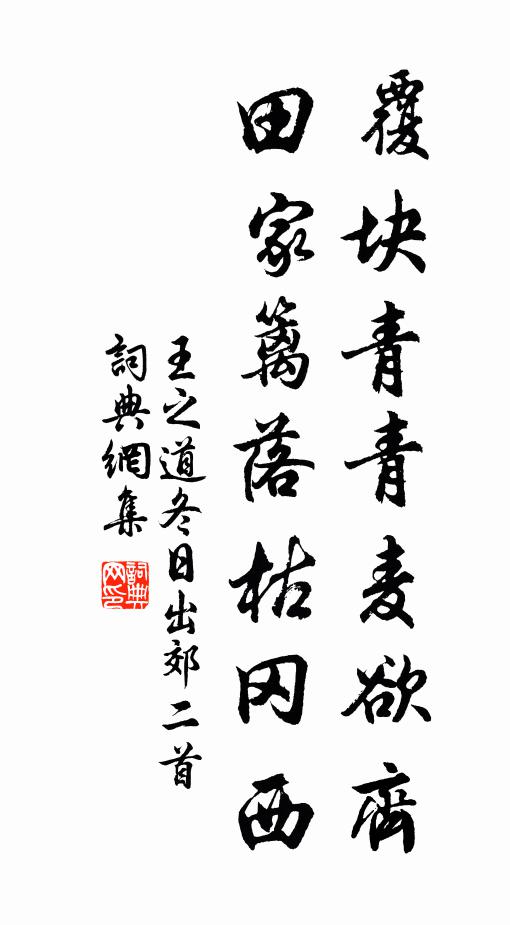 覆块青青麦欲齊
田家篱落枯冈西
王之道冬日出郊二首
詞典網集
詞典网印